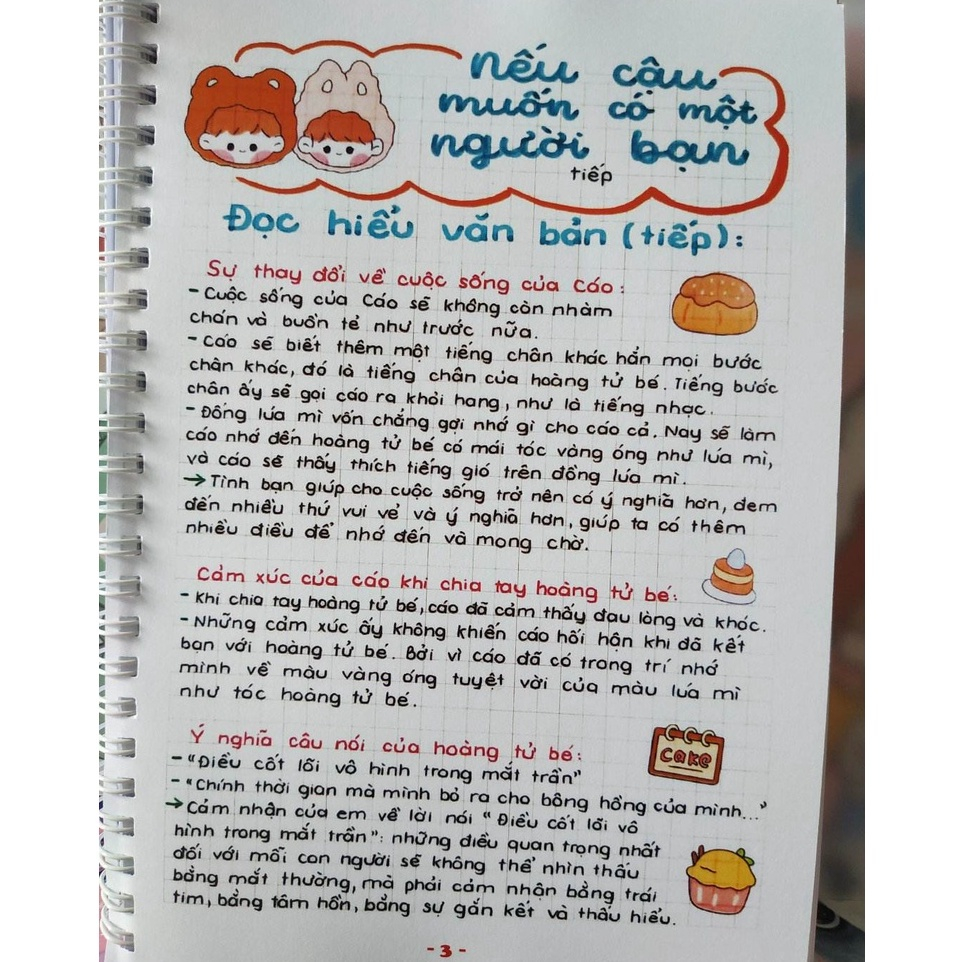 nếu cậu
muốn có một
người bạn
tiếp
Đọc hiểu văn bản (tiếp):
Sự thay đổi về cuộc sống của Cáo:
- Cuộc sống của Cáo sẽ không còn nhàm
chán và buồn tẻ như trước nữa.
- Cáo sẽ biết thêm một tiếng chân khác hẳn mọi bước
chân khác, đó là tiếng chân của hoàng tử bé. Tiếng bước
chân ấy sẽ gọi cáo ra khỏi hang, như là tiếng nhạc.
- Đồng lúa mì vốn chẳng gợi nhớ gì cho cáo cả. Nay sẽ làm
cáo nhớ đến hoàng tử bé có mái tóc vàng óng như lúa mì,
và cáo sẽ thấy thích tiếng gió trên đồng lúa mì.
→ Tình bạn giúp cho cuộc sống trở nên có ý nghĩa hơn, đem
đến nhiều thứ vui vẻ và ý nghĩa hơn, giúp ta có thêm
nhiều điều để nhớ đến và mong chờ.
Cảm xúc của cáo khi chia tay hoàng tử bé:
- Khi chia tay hoàng tử bé, cáo đã cảm thấy đau lòng và khóc.
- Những cảm xúc ấy không khiến cáo hối hận khi đã kết
bạn với hoàng tử bé. Bởi vì cáo đã có trong trí nhớ
mình về màu vàng óng tuyệt vời của màu lúa mì
như tóc hoàng tử bé.
Ý nghĩa câu nói của hoàng tử bé:
- "Điều cốt lõi vô hình trong mắt trần"
- "Chính thời gian mà mình bỏ ra cho bông hồng của mình..."
→ Cảm nhận của em về lời nói "Điều cốt lõi vô
hình trong mắt trần": những điều quan trọng nhất
đối với mỗi con người sẽ không thể nhìn thấu
bằng mắt thường, mà phải cảm nhận bằng trái
tim, bằng tâm hồn, bằng sự gắn kết và thấu hiểu.
Cake
- 3 -